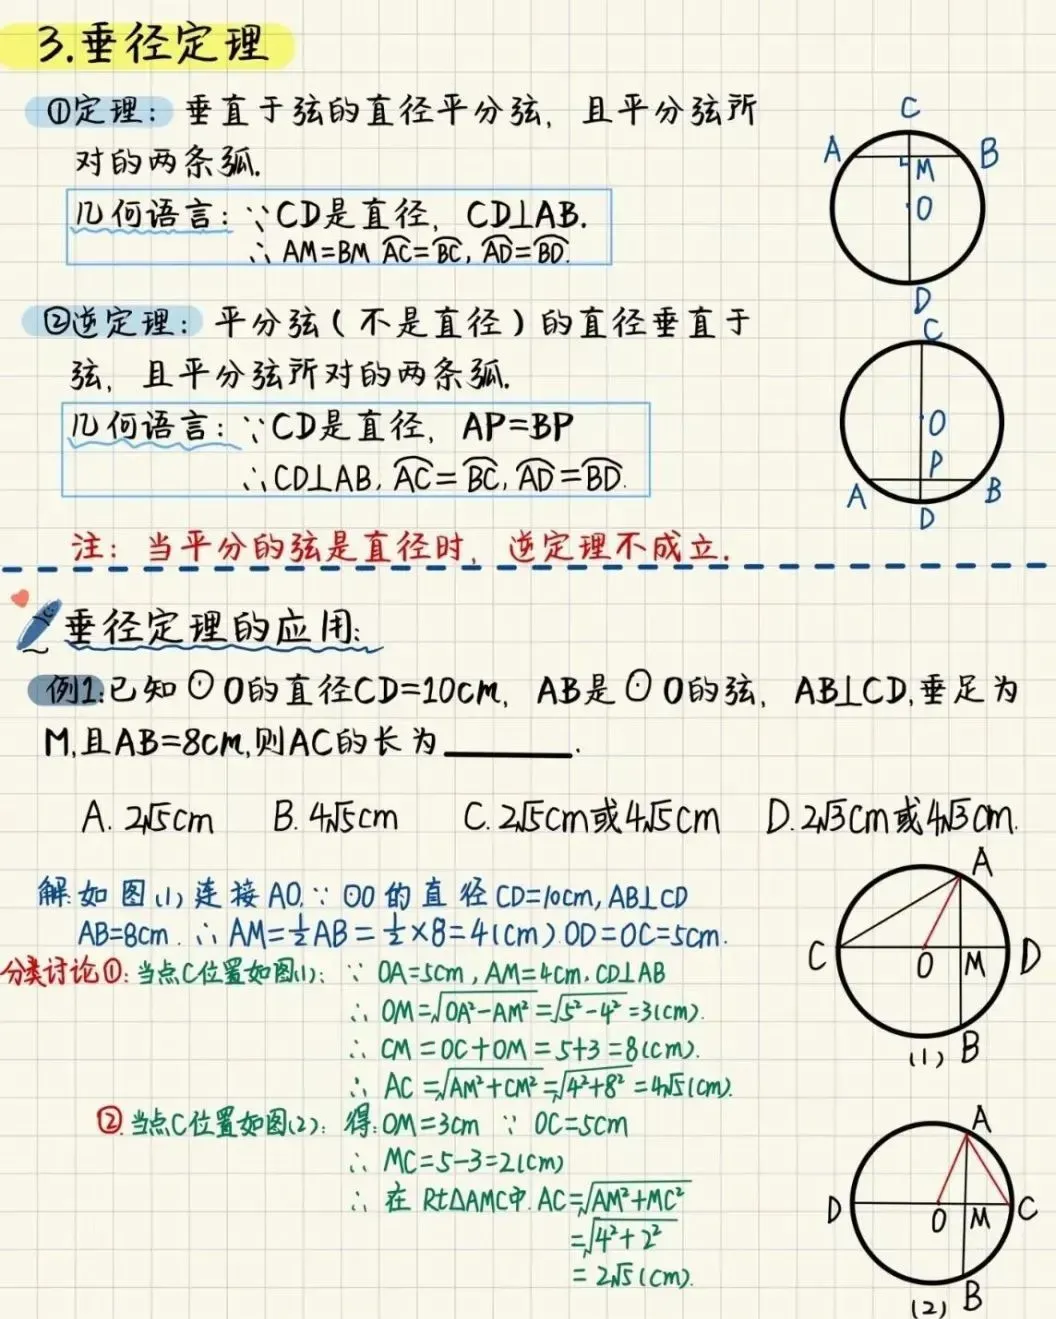 3.垂径定理
①定理：垂直于弦的直径平分弦，且平分弦所
对的两条弧.
几何语言：∵CD是直径，CD⊥AB.
∴AM=BM AC⌒=BC⌒, AD⌒=BD⌒.
C
A
B
M
O
D
②逆定理：平分弦（不是直径）的直径垂直于
弦，且平分弦所对的两条弧.
几何语言：∵CD是直径，AP=BP
∴CD⊥AB, AC⌒=BC⌒, AD⌒=BD⌒.
C
O
P
A
B
D
注：当平分的弦是直径时，逆定理不成立.
垂径定理的应用:
例1:已知⊙O的直径CD=10cm，AB是⊙O的弦，AB⊥CD,垂足为
M,且AB=8cm,则AC的长为______.
A. 2√5cm B. 4√5cm C. 2√5cm或4√5cm D. 2√3cm或4√3cm.
解:如图(1)连接AO.∵⊙O的直径CD=10cm, AB⊥CD
AB=8cm.∴AM=½AB=½×8=4(cm) OD=OC=5cm.
分类讨论①:当点C位置如图(1): ∵ OA=5cm, AM=4cm. CD⊥AB
∴ OM=√OA²-AM²=√5²-4²=3(cm).
∴ CM=OC+OM=5+3=8(cm).
∴ AC=√AM²+CM²=√4²+8²=4√5(cm).
A
C
O
M
D
B
(1)
②.当点C位置如图(2): 得:OM=3cm ∵ OC=5cm
∴ MC=5-3=2(cm)
∴ 在Rt△AMC中.AC=√AM²+MC²
=√4²+2²
=2√5(cm).
A
D
O
M
C
B
(2)